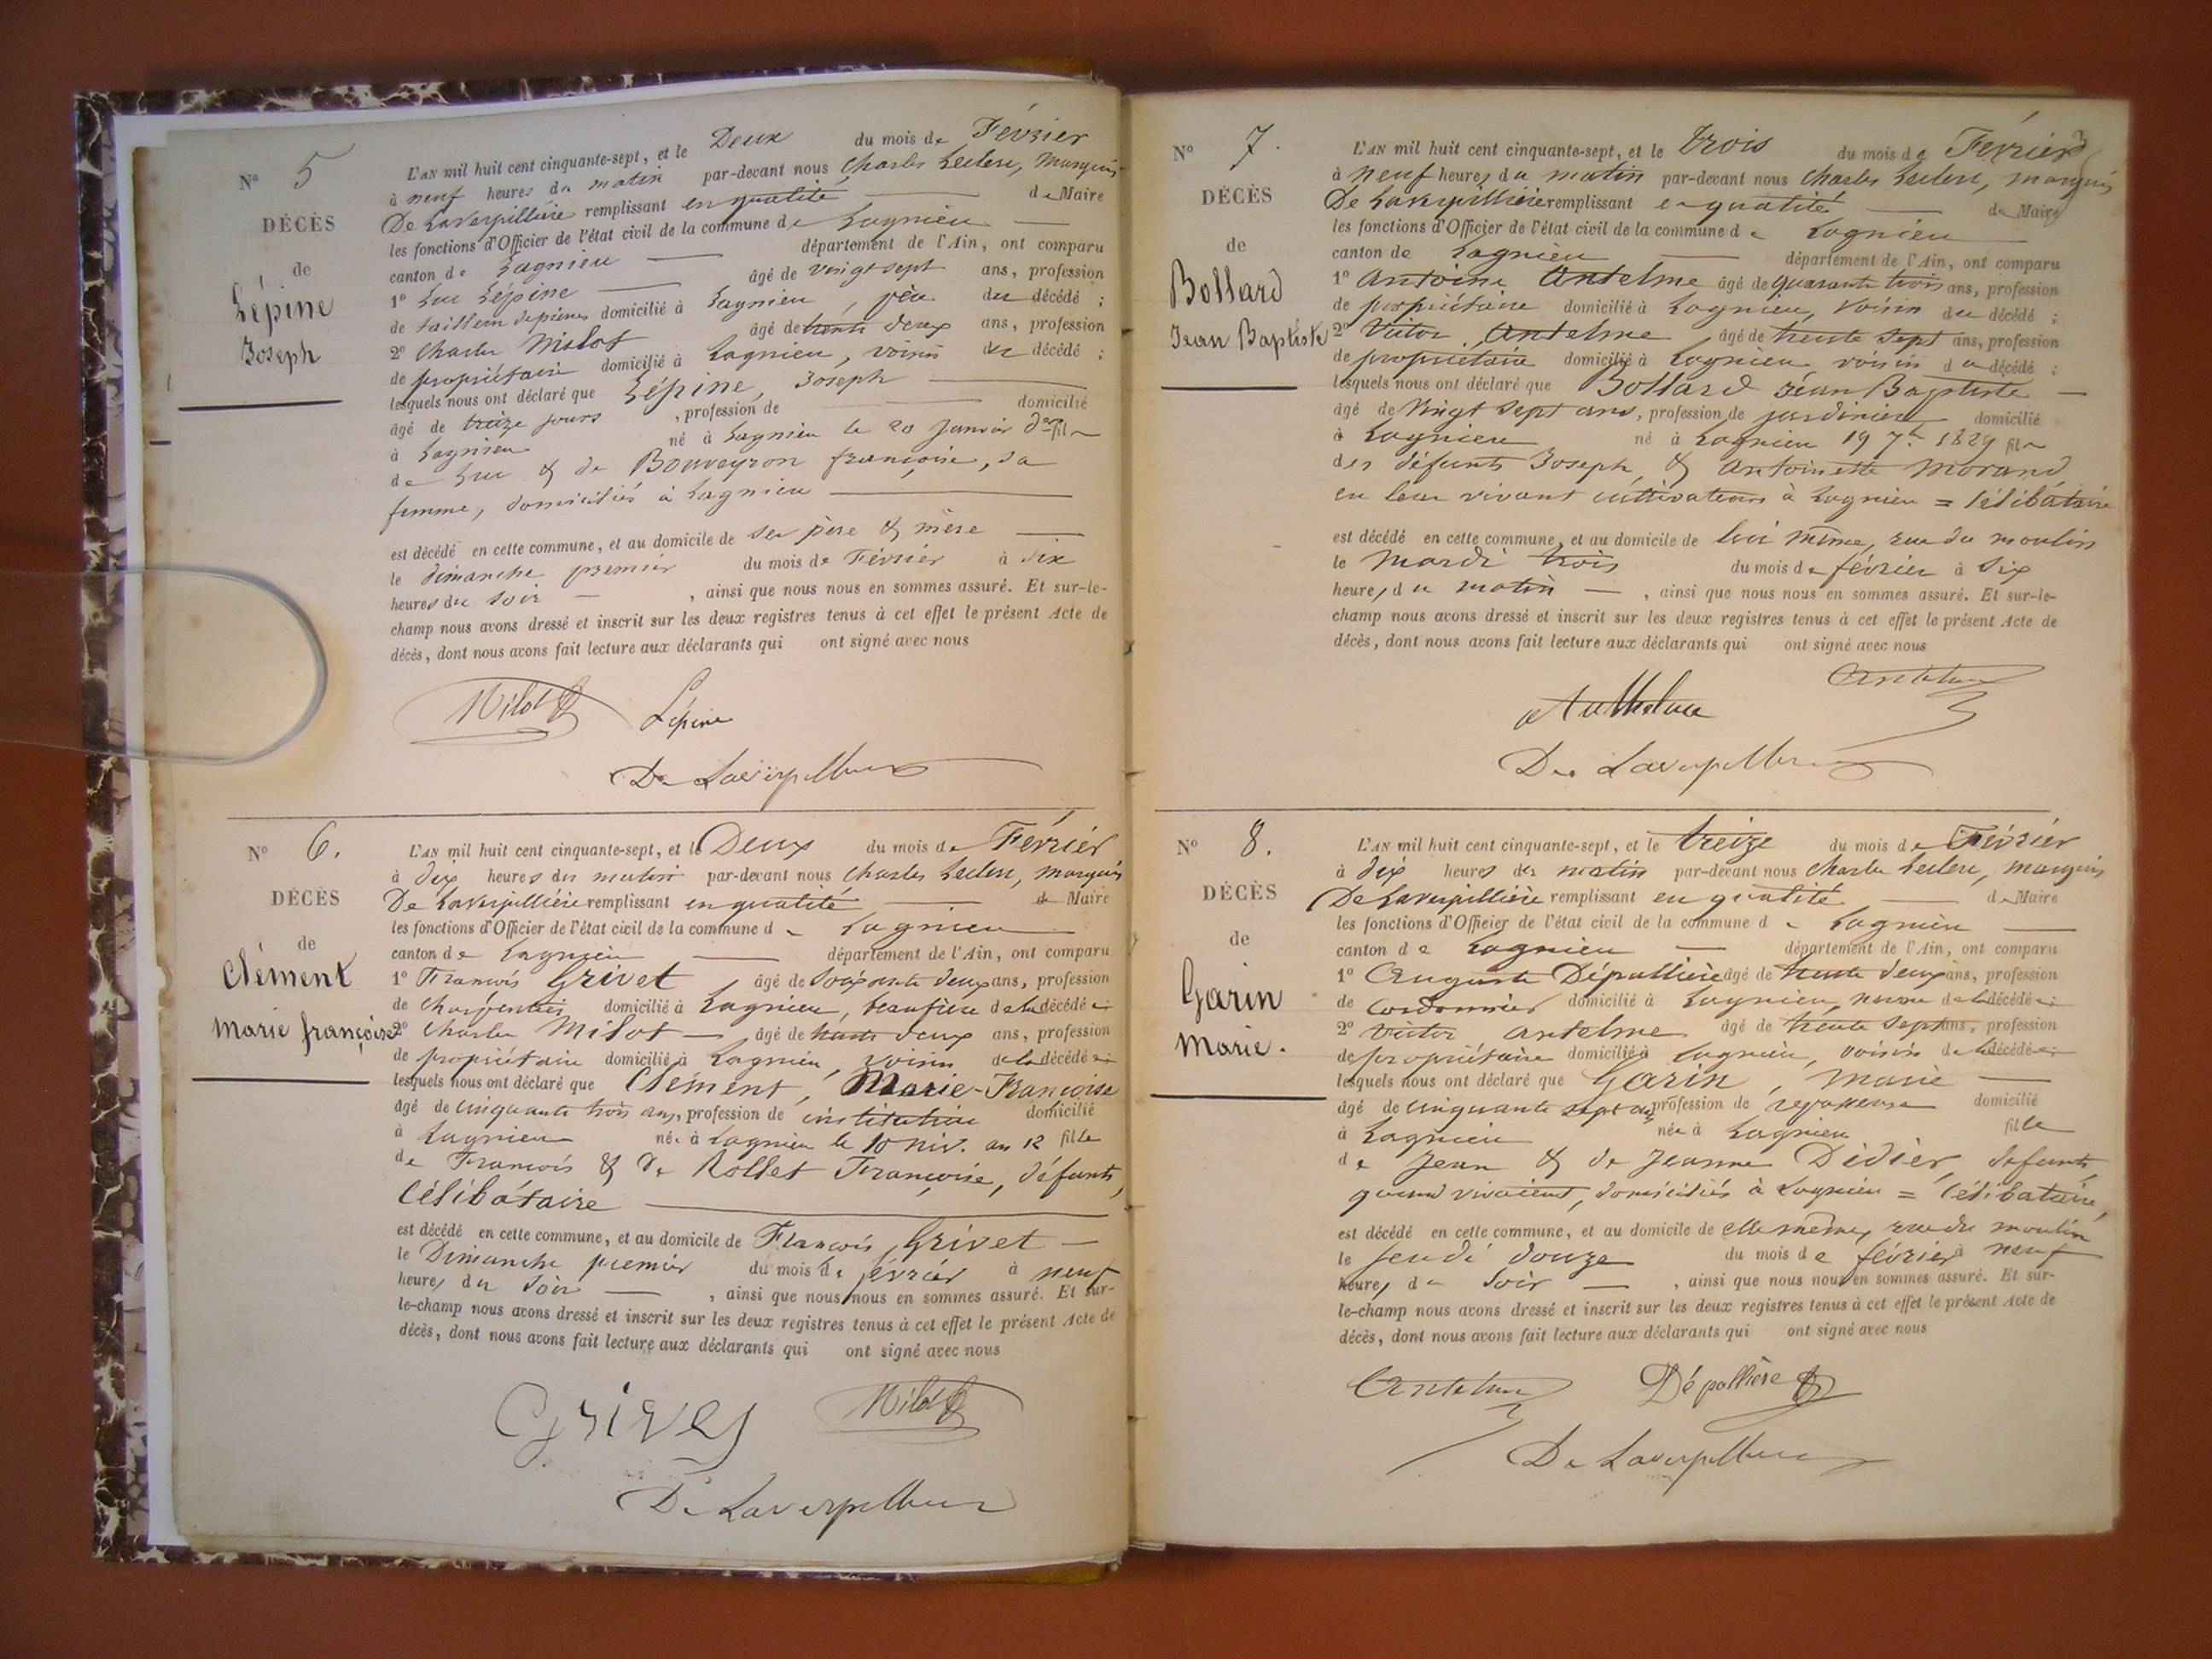 N° 5
DÉCÈS
de
Lépine
Joseph
L'AN mil huit cent cinquante-sept, et le Deux du mois de Février
à neuf heures du matin par-devant nous Charles Leclerc, Marquis
De Laverpillière remplissant en qualité de Maire
les fonctions d'Officier de l'état civil de la commune de Lagnieu
canton de Lagnieu département de l'Ain, ont comparu
1° Luc Lépine âgé de vingt sept ans, profession
de tailleur de pierres domicilié à Lagnieu, père du décédé ;
2° Charles Milot âgé de trente deux ans, profession
de propriétaire domicilié à Lagnieu, voisin du décédé ;
lesquels nous ont déclaré que Lépine, Joseph
âgé de treize jours , profession de domicilié
à Lagnieu né à Lagnieu le 20 Janvier der fils
de Luc & de Bouveyron françoise, sa
femme, domiciliés à Lagnieu
est décédé en cette commune, et au domicile de ses père & mère
le dimanche premier du mois de Février à six
heures du soir , ainsi que nous nous en sommes assuré. Et sur-le-
champ nous avons dressé et inscrit sur les deux registres tenus à cet effet le présent Acte de
décès, dont nous avons fait lecture aux déclarants qui ont signé avec nous
Milot Lépine
De Laverpillière
N° 6.
DÉCÈS
de
Clément
Marie françoise
L'AN mil huit cent cinquante-sept, et le Deux du mois de Février
à dix heures du matin par-devant nous Charles Leclerc, marquis
De Laverpillière remplissant en qualité de Maire
les fonctions d'Officier de l'état civil de la commune de Lagnieu
canton de Lagnieu département de l'Ain, ont comparu
1° François Grivet âgé de soixante deux ans, profession
de Charpentier domicilié à Lagnieu, beaufrère de la décédée
2° Charles Milot âgé de trente deux ans, profession
de propriétaire domicilié à Lagnieu, voisin de la décédée
lesquels nous ont déclaré que Clément, Marie-Françoise
âgé de cinquante trois ans, profession de institutrice domicilié
à Lagnieu née à Lagnieu le 10 niv. an 12 fille
de François & de Rollet Françoise, défunts,
Célibataire
est décédé en cette commune, et au domicile de François Grivet
le Dimanche premier du mois de février à neuf
heures du soir , ainsi que nous nous en sommes assuré. Et sur-
le-champ nous avons dressé et inscrit sur les deux registres tenus à cet effet le présent Acte de
décès, dont nous avons fait lecture aux déclarants qui ont signé avec nous
Grivet Milot
De Laverpillière
N° 7.
DÉCÈS
de
Bollard
Jean Baptiste
L'AN mil huit cent cinquante-sept, et le trois du mois de Février
à neuf heures du matin par-devant nous Charles Leclerc, marquis
De Laverpillière remplissant en qualité de Maire
les fonctions d'Officier de l'état civil de la commune de Lagnieu
canton de Lagnieu département de l'Ain, ont comparu
1° Antoine Antelme âgé de quarante trois ans, profession
de propriétaire domicilié à Lagnieu, voisin du décédé ;
2° Victor Antelme âgé de trente sept ans, profession
de propriétaire domicilié à Lagnieu voisin du décédé ;
lesquels nous ont déclaré que Bollard Jean Baptiste
âgé de vingt sept ans, profession de jardinier domicilié
à Lagnieu né à Lagnieu 19 7bre 1829 fils
des défunts Joseph & Antoinette Morand
en leur vivant cultivateurs à Lagnieu = Célibataire
est décédé en cette commune, et au domicile de lui même, rue du moulin
le mardi trois du mois de février à six
heures du matin , ainsi que nous nous en sommes assuré. Et sur-le-
champ nous avons dressé et inscrit sur les deux registres tenus à cet effet le présent Acte de
décès, dont nous avons fait lecture aux déclarants qui ont signé avec nous
Antelme
Anthelme
De Laverpillière
N° 8.
DÉCÈS
de
Garin
Marie.
L'AN mil huit cent cinquante-sept, et le treize du mois de Février
à dix heures du matin par-devant nous Charles Leclerc, marquis
De Laverpillière remplissant en qualité de Maire
les fonctions d'Officier de l'état civil de la commune de Lagnieu
canton de Lagnieu département de l'Ain, ont comparu
1° Auguste Dépallière âgé de trente deux ans, profession
de Cordonnier domicilié à Lagnieu, neveu de la décédée
2° Victor Antelme âgé de trente sept ans, profession
de propriétaire domicilié à Lagnieu, voisin de la décédée
lesquels nous ont déclaré que Garin, Marie
âgé de cinquante sept ans, profession de repasseuse domicilié
à Lagnieu née à Lagnieu fille
de Jean & de Jeanne Didier, défunts
quand vivaient, domiciliés à Lagnieu = Célibataire,
est décédé en cette commune, et au domicile de elle même, rue du moulin
le jeudi douze du mois de février à neuf
heures du soir , ainsi que nous nous en sommes assuré. Et sur-
le-champ nous avons dressé et inscrit sur les deux registres tenus à cet effet le présent Acte de
décès, dont nous avons fait lecture aux déclarants qui ont signé avec nous
Antelme Dépallière
De Laverpillière